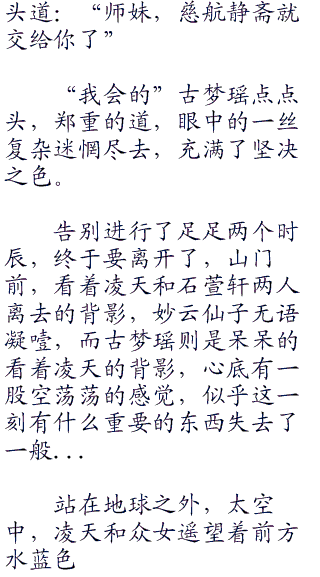 头道：“师妹，慈航静斋就
交给你了”
“我会的”古梦瑶点点
头，郑重的道，眼中的一丝
复杂迷惘尽去，充满了坚决
之色。
告别进行了足足两个时
辰，终于要离开了，山门
前，看着凌天和石萱轩两人
离去的背影，妙云仙子无语
凝噎，而古梦瑶则是呆呆的
看着凌天的背影，心底有一
股空荡荡的感觉，似乎这一
刻有什么重要的东西失去了
一般...
站在地球之外，太空
中，凌天和众女遥望着前方
水蓝色